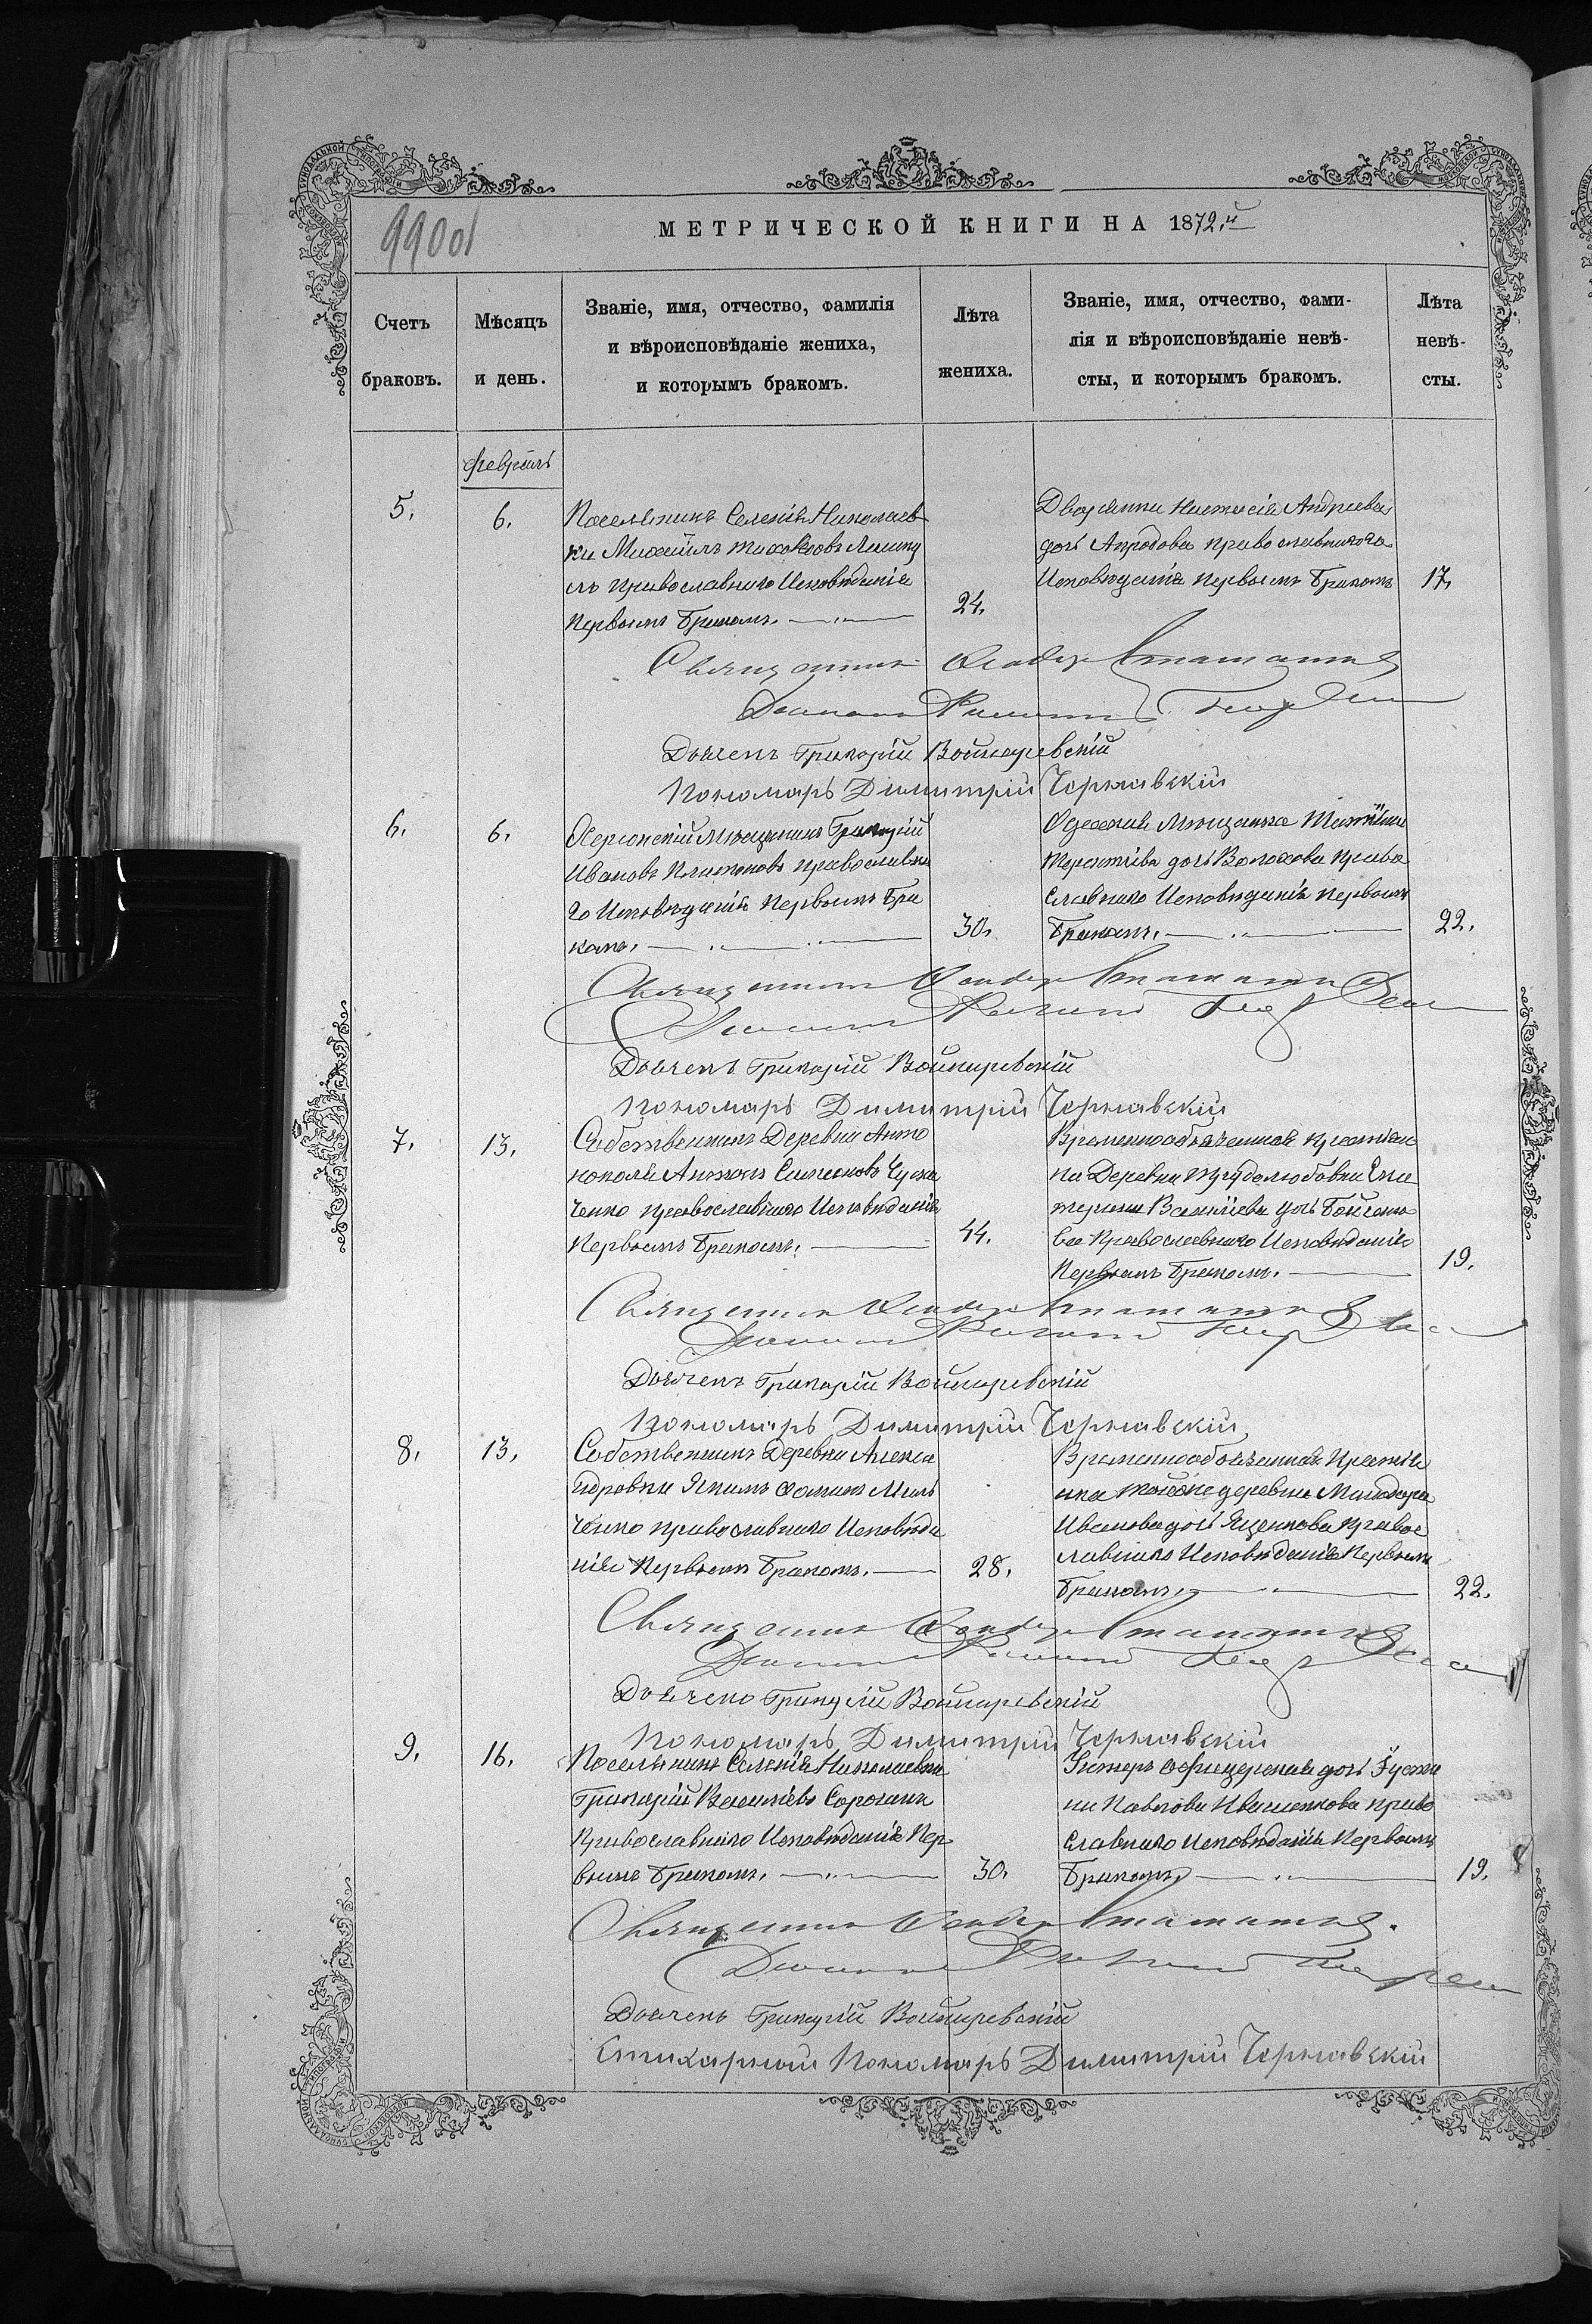 990об
МЕТРИЧЕСКОЙ КНИГИ НА 1872.й
Счетъ браковъ.
Мѣсяцъ и день.
Званіе, имя, отчество, фамилія
и вѣроисповѣданіе жениха,
и которымъ бракомъ.
Лѣта жениха.
Званіе, имя, отчество, фами-
лія и вѣроисповѣданіе невѣ-
сты, и которымъ бракомъ.
Лѣта невѣ-
сты.
Февраль
5.
6.
Поселянинъ Селенія Николаев
ки Михаилъ
православнаго Исповѣданія
первымъ бракомъ.
24.
Дворянка Настасія Андреева
дочь православнаго
Исповѣданія первымъ бракомъ
17.
Священникъ
Діаконъ
Дьячекъ Григорій Войнаревскій
Пономарь Димитрій Чернавскій
6.
6.
Херсонскій мѣщанинъ Григорій
Ивановъ Платоновъ православна
го Исповѣданія первымъ бра
комъ.
30.
Одесская мѣщанка
Терентіева дочь Волохова право
славнаго Исповѣданія первымъ
бракомъ.
22.
Священникъ
Діаконъ
Дьячекъ Григорій Войнаревскій
Пономарь Димитрій Чернавскій
7.
13.
Собственникъ Деревни Анто
нополя Антонъ Симеоновъ
православнаго Исповѣданія
первымъ бракомъ.
44.
Временнообязанная крестьян
ка Деревни Трудолюбовки Ека
терина Василіева дочь
ва православнаго Исповѣданія
первымъ бракомъ.
19.
Священникъ
Діаконъ
Дьячекъ Григорій Войнаревскій
Пономарь Димитрій Чернавскій
8.
13.
Собственникъ Деревни Алекса
ндровки Якимъ Фоминъ Миль
ченко православнаго Исповѣда
нія первымъ бракомъ.
28.
Временнообязанная крестья
нка той же деревни
Иванова дочь Яценкова правос
лавнаго Исповѣданія первымъ
бракомъ
22.
Священникъ
Діаконъ
Дьячекъ Григорій Войнаревскій
Пономарь Димитрій Чернавскій
9.
16.
Поселянинъ Селенія Николаевки
Григорій Василіевъ Сорочанъ
православнаго Исповѣданія пер
вымъ бракомъ.
30.
Унтеръ офицерская дочь
Павлова Ивашенкова право
славнаго Исповѣданія первымъ
бракомъ
19.
Священникъ
Діаконъ
Дьячекъ Григорій Войнаревскій
Стихарный Пономарь Димитрій Чернавскій